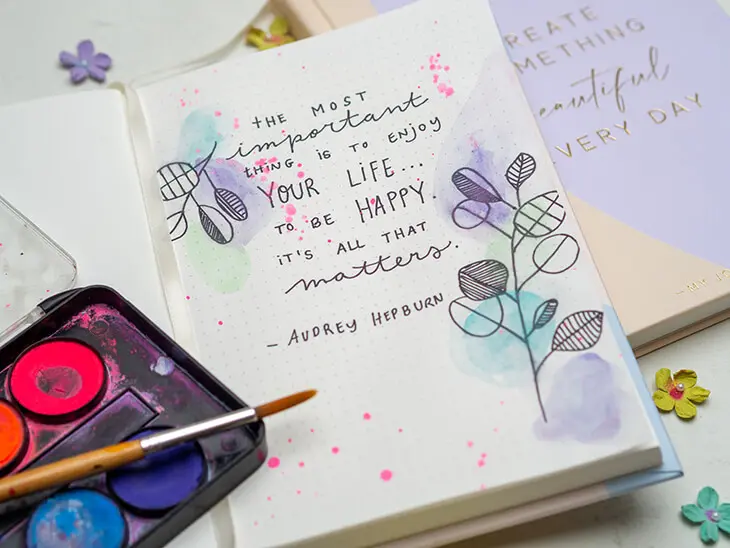 THE MOST
important
THING IS TO ENJOY
YOUR LIFE...
TO BE HAPPY.
IT'S ALL THAT
matters.
- AUDREY HEPBURN
REATE
METHING
eautiful
VERY DAY